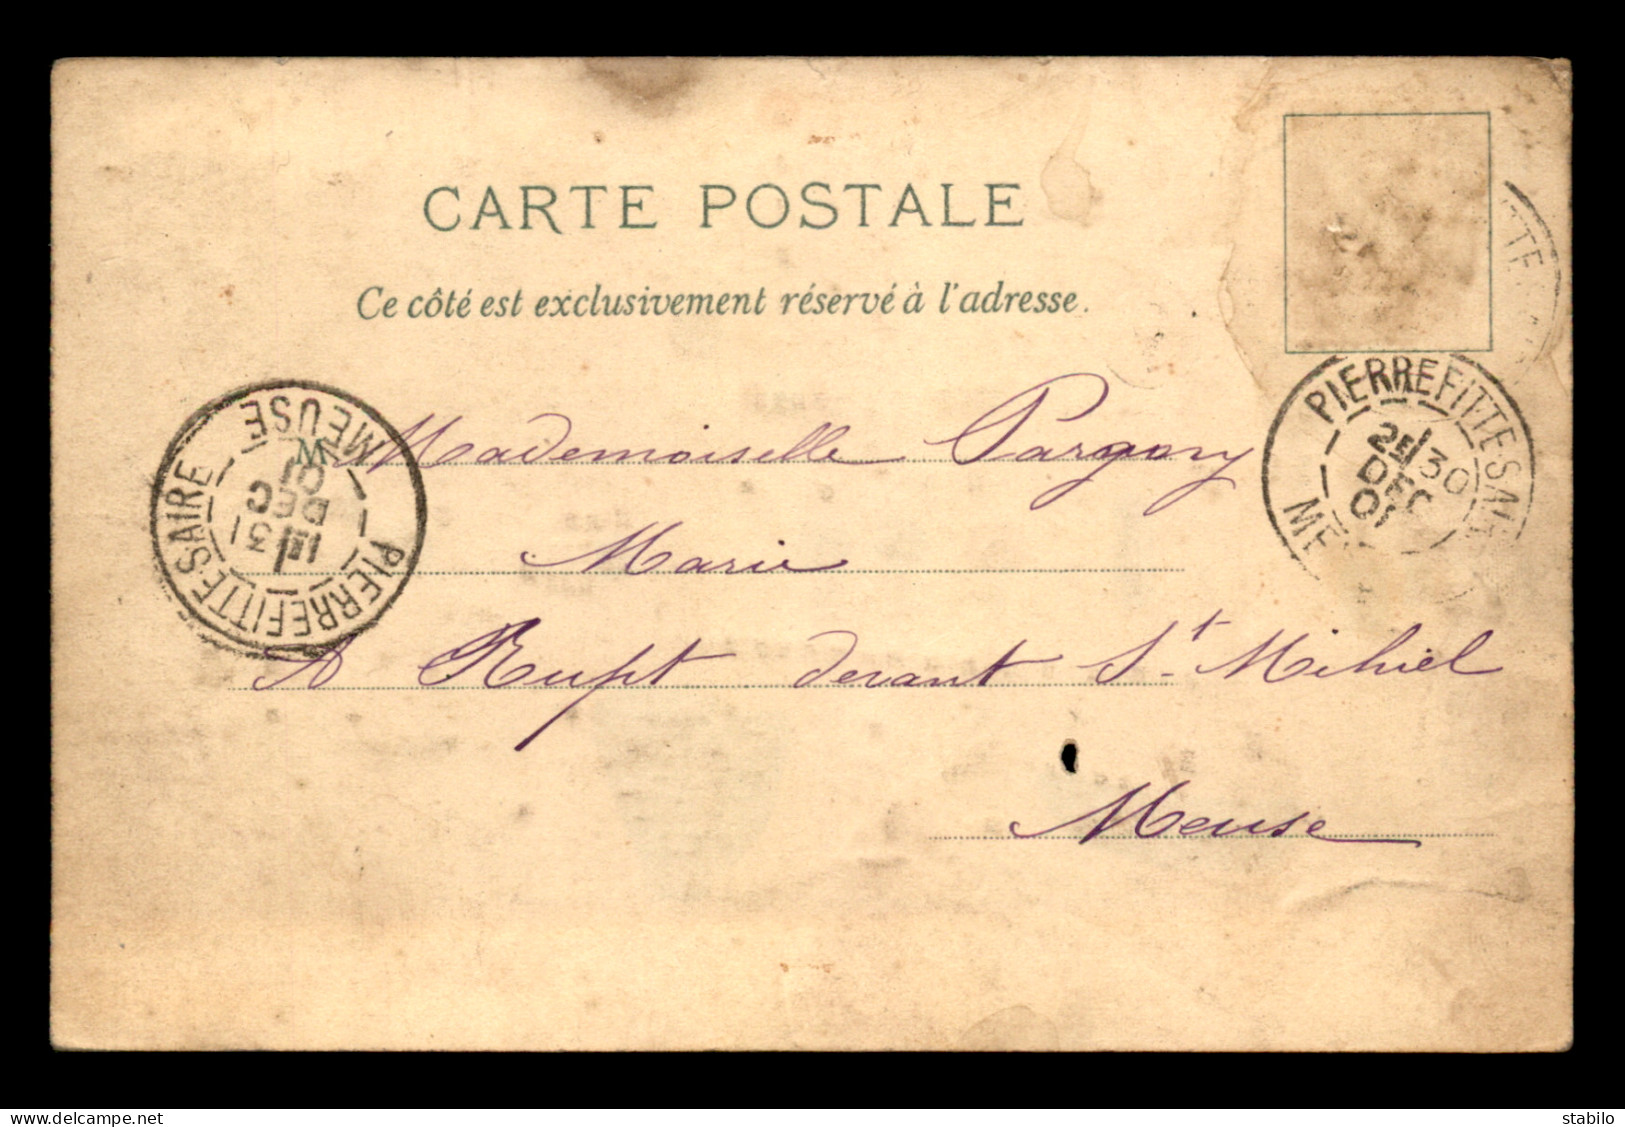 CARTE POSTALE
Ce côté est exclusivement réservé à l'adresse.
M
Mademoiselle Pargony
Marie
A Rupt devant St. Mihiel
Meuse
PIERREFITTE S AIRE
MEUSE
31
DEC
01
PIERREFITTE S AI
ME
2E 30
DEC
01
TTE
delcampe.net
stabilo